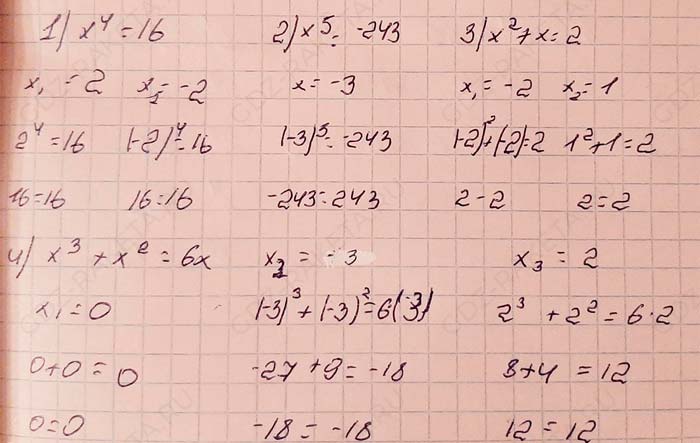 1) x⁴ = 16 2) x⁵ = -243 3) x² + x = 2
x₁ = 2 x₂ = -2 x = -3 x₁ = -2 x₂ = 1
2⁴ = 16 (-2)⁴ = 16 (-3)⁵ = -243 (-2)² + (-2) = 2 1² + 1 = 2
16 = 16 16 = 16 -243 = 243 2 - 2 2 = 2
4) x³ + x² = 6x x₂ = -3 x₃ = 2
x₁ = 0 (-3)³ + (-3)² = 6(-3) 2³ + 2² = 6·2
0 + 0 = 0 -27 + 9 = -18 8 + 4 = 12
0 = 0 -18 = -18 12 = 12